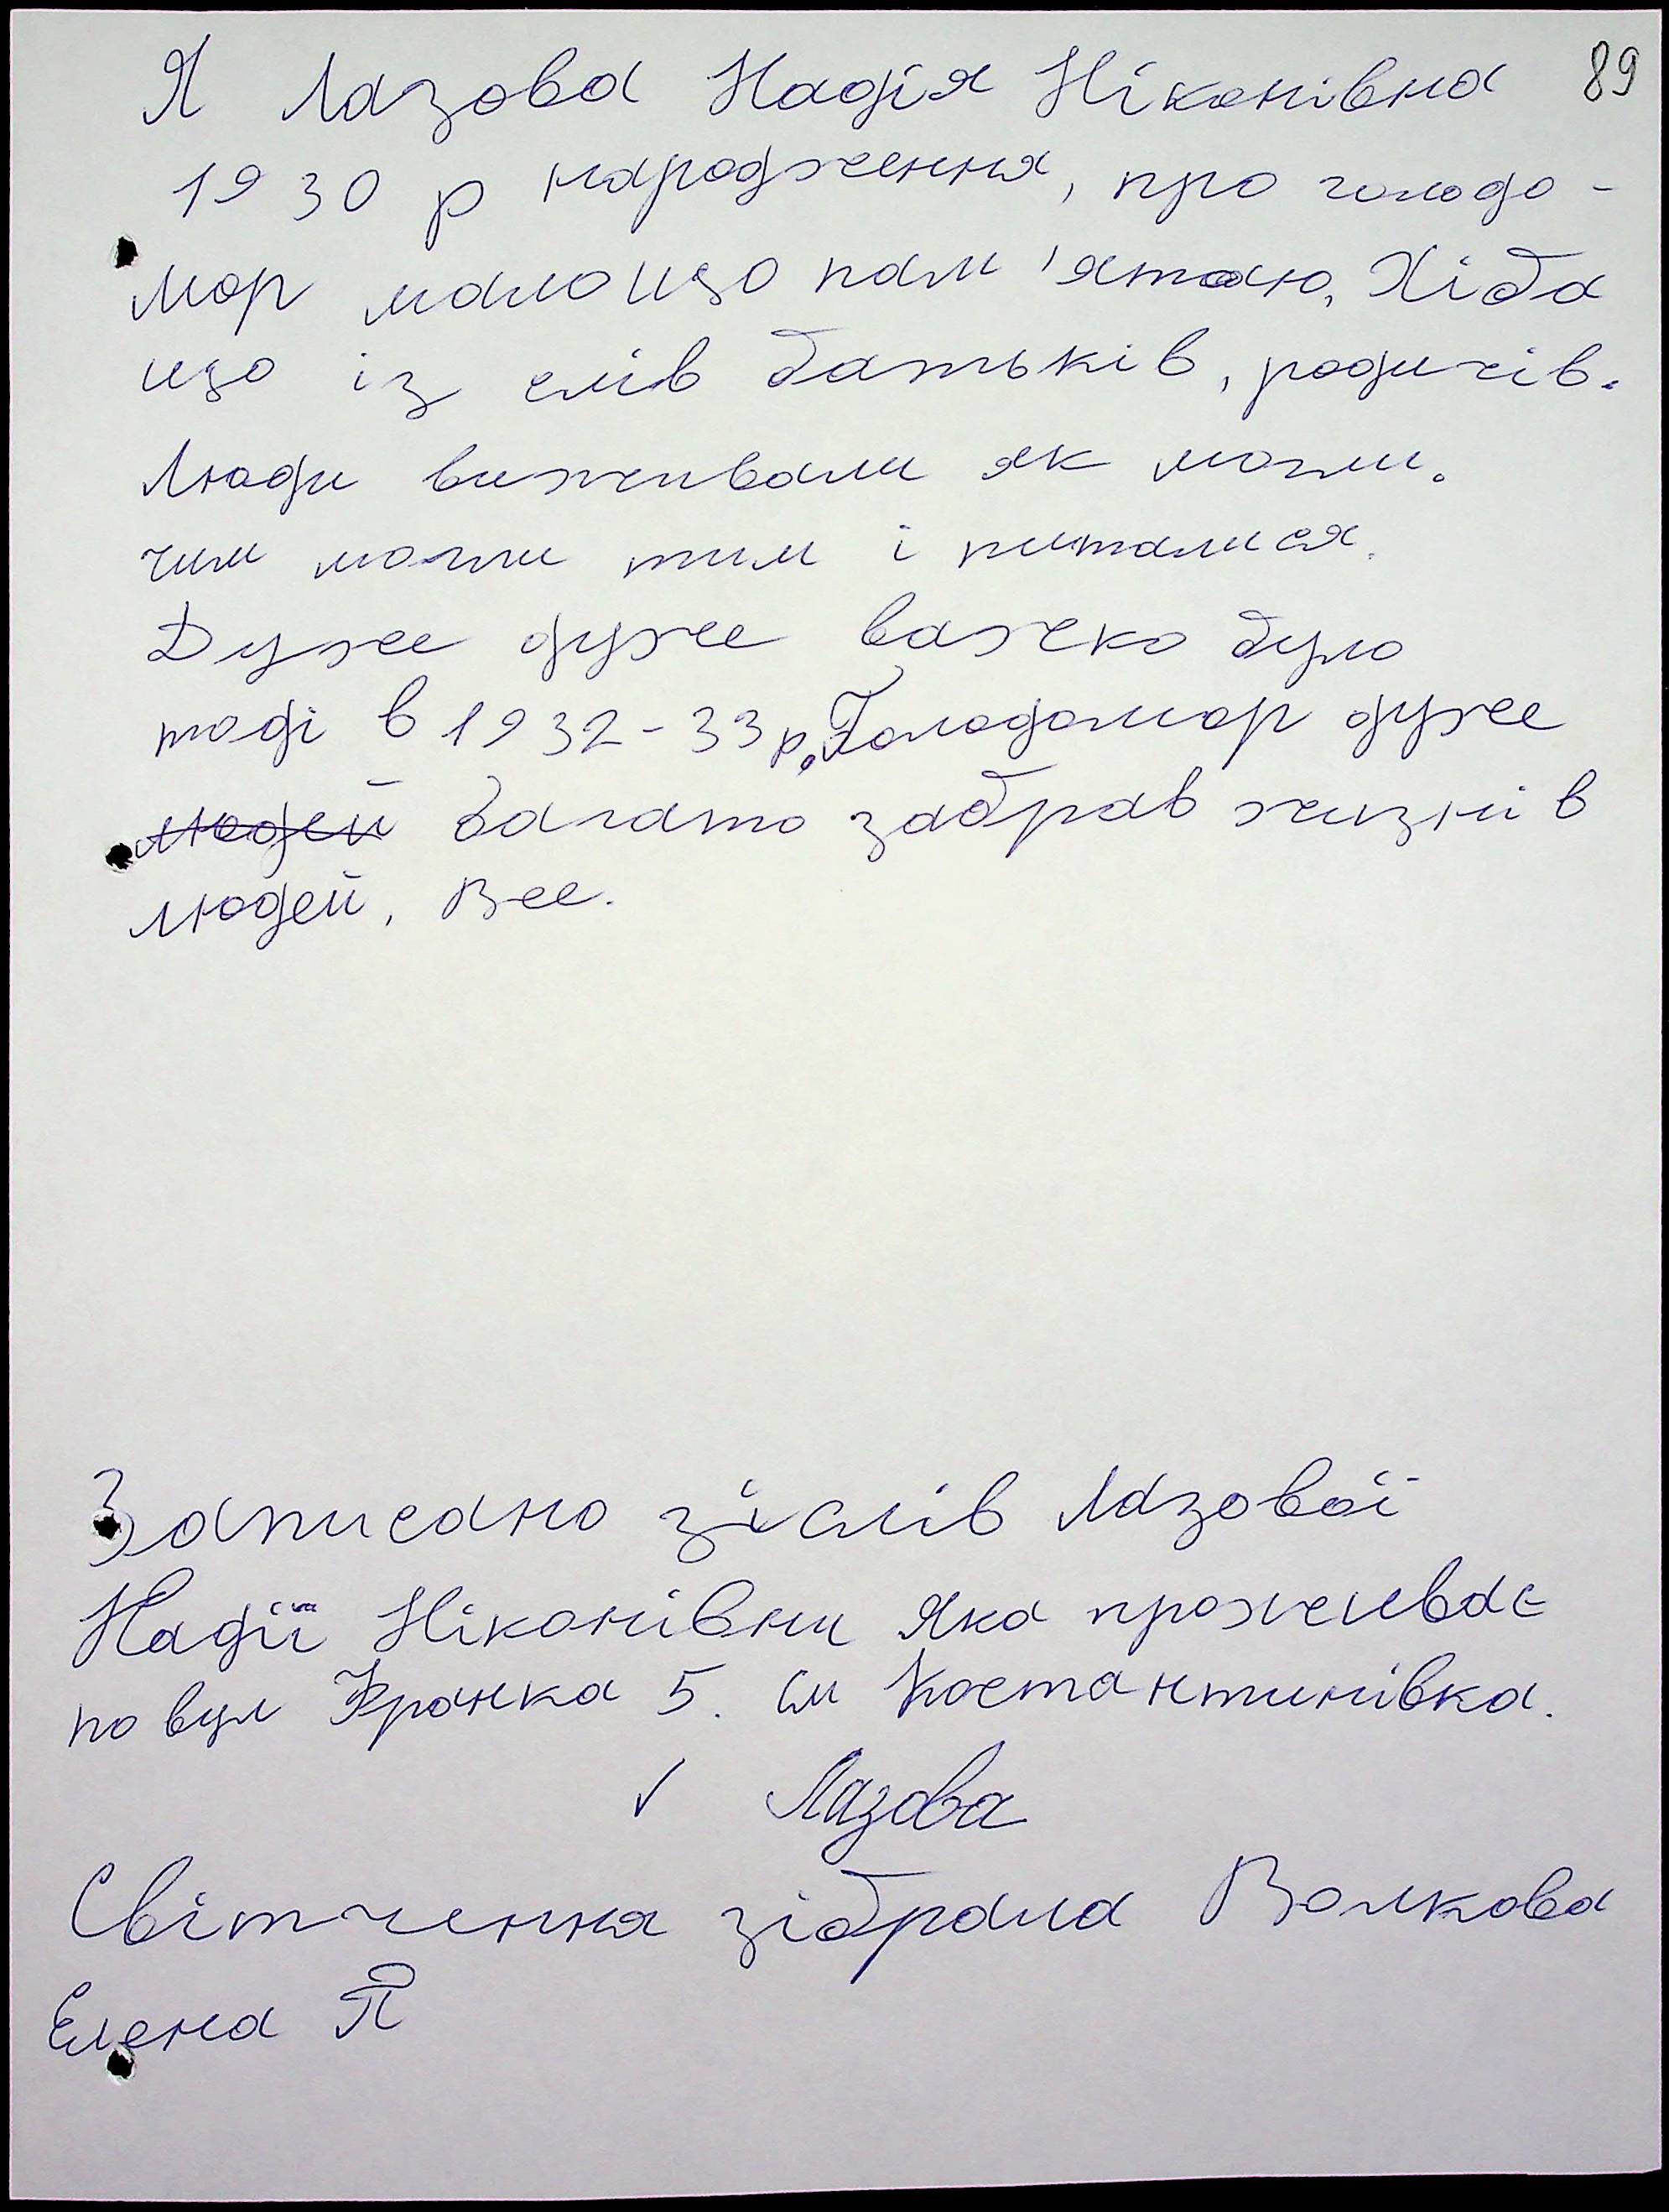 89
Я Лазова Надія Ніконівна
1930 р народження, про голодо-
мор мало що пам'ятаю, Хіба
що із слів батьків, родичів.
Люди виживали як могли.
чим могли тим і питалися.
Дуже дуже важко було
тоді в 1932-33 р. Голодомор дуже
людей багато забрав жизнів
людей, Все.
Записано зі слів Лазової
Надії Ніконівни яка проживає
по вул Франка 5. см Костантинівка.
✓ Лазова
Світчення зібрала Волкова
Елена П